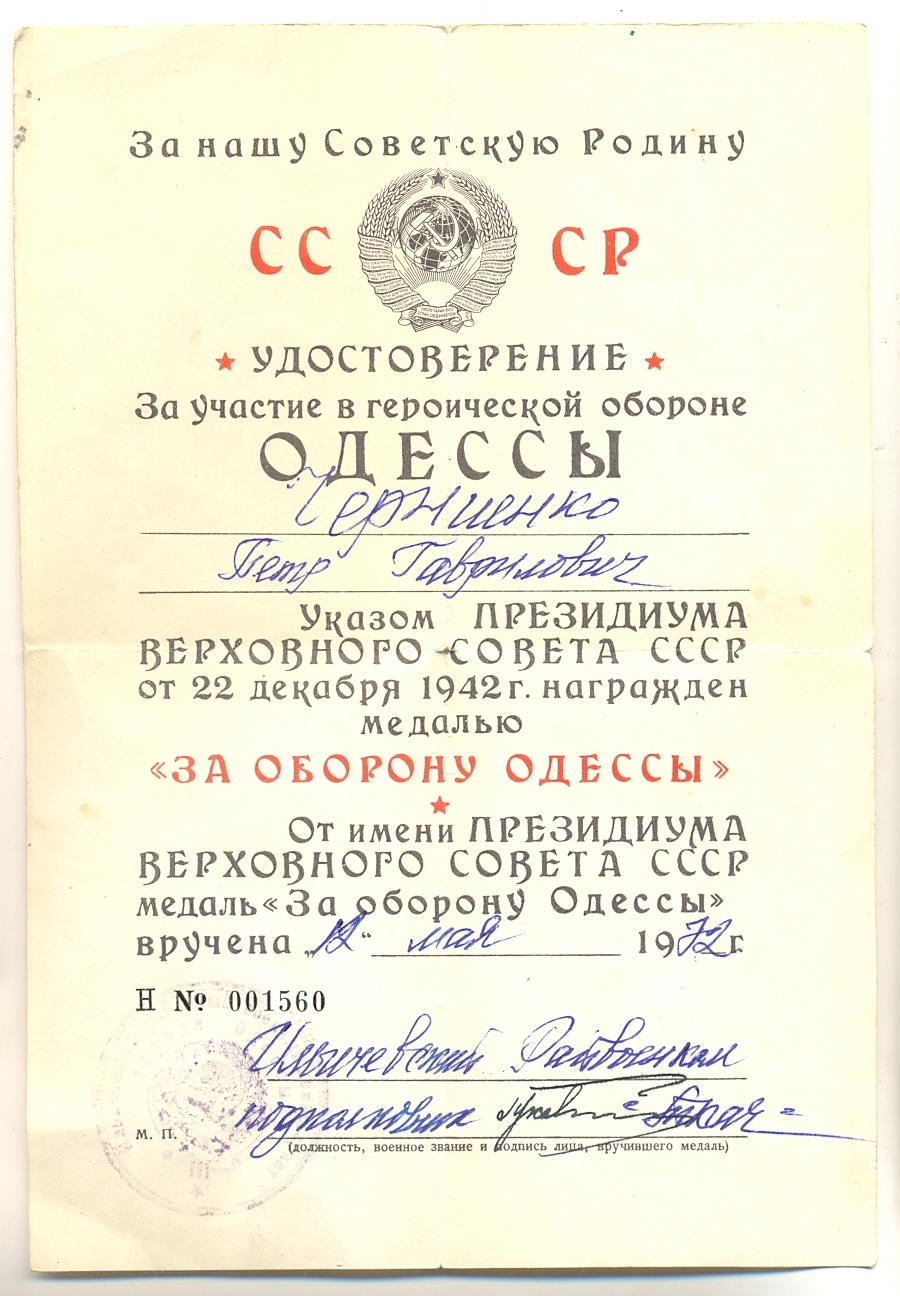 За нашу Советскую Родину
СССР
УДОСТОВЕРЕНИЕ
За участие в героической обороне
ОДЕССЫ
Петр Гаврилович
Указом ПРЕЗИДИУМА
ВЕРХОВНОГО СОВЕТА СССР
от 22 декабря 1942 г. награжден
медалью
«ЗА ОБОРОНУ ОДЕССЫ»
От имени ПРЕЗИДИУМА
ВЕРХОВНОГО СОВЕТА СССР
медаль «За оборону Одессы»
вручена „12“ мая 1972 г.
Н № 001560
Ильичевский Райвоенком
подполковник
М. П.
(должность, военное звание и подпись лица, вручившего медаль)